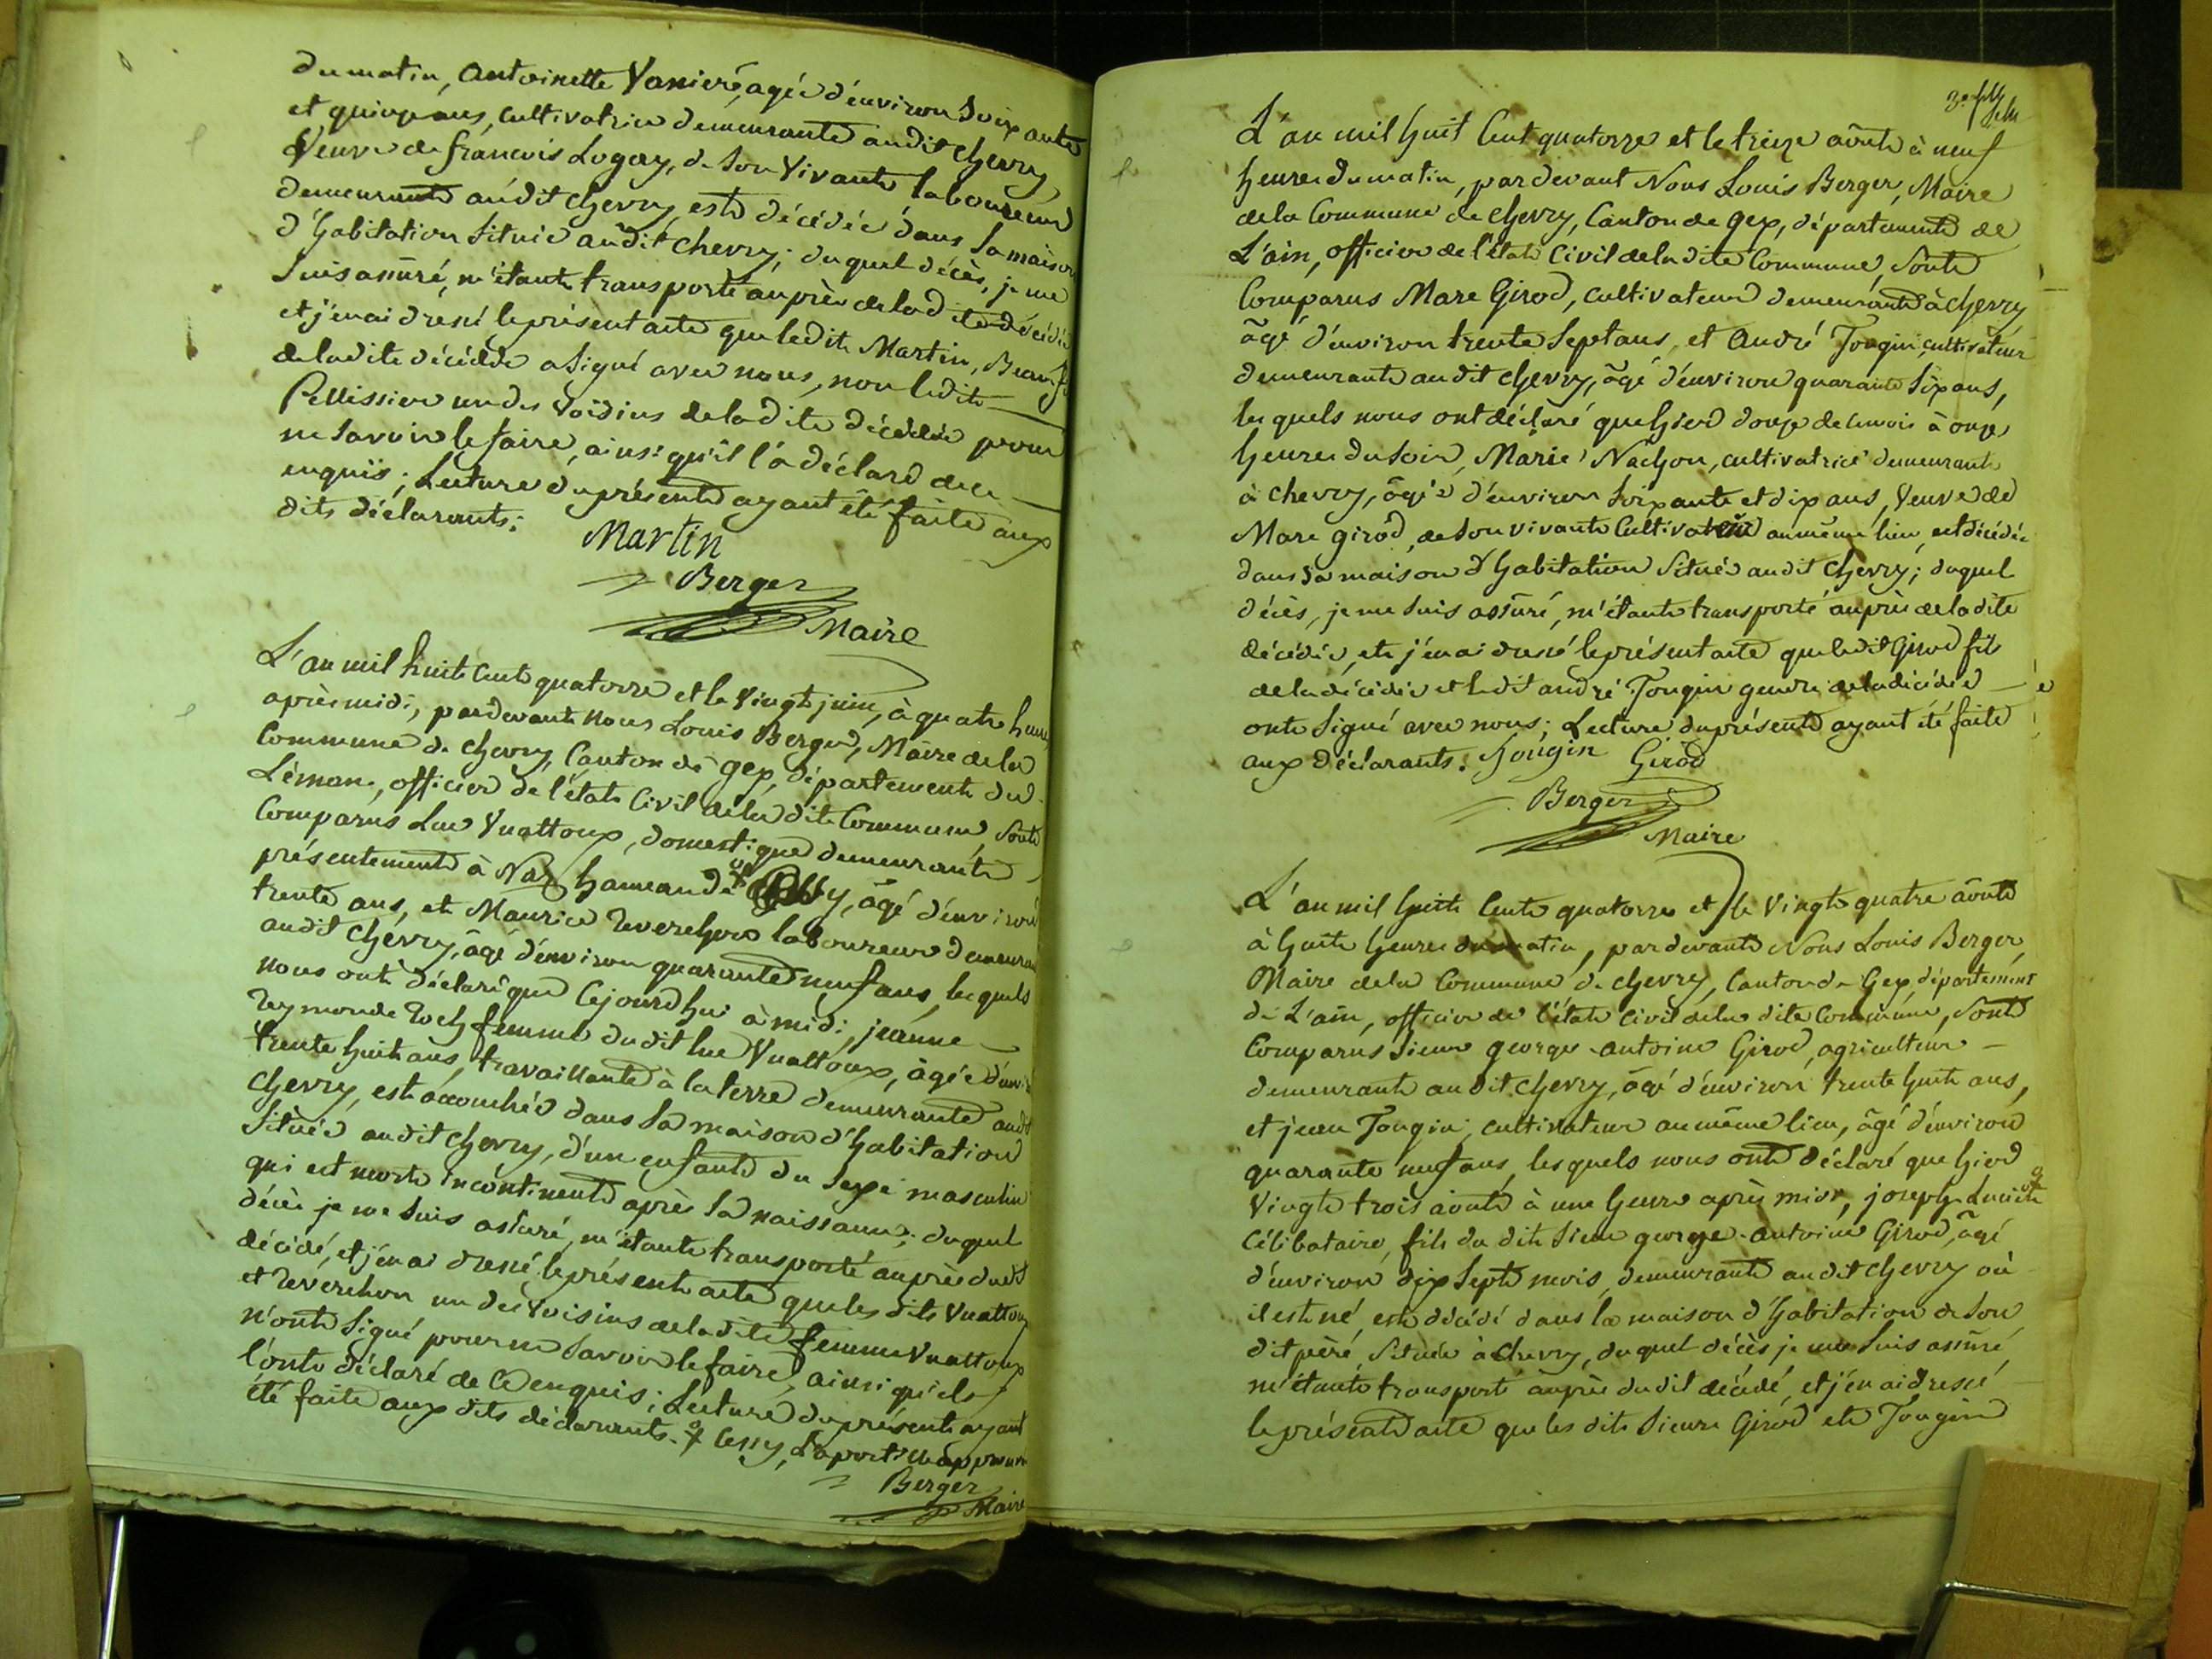 du matin, Antoinette Vanieré, agée d'environ Soixante
et quinze ans, cultivatrice demeurante audit chevry
Veuve de francois Logoy, de Son Vivant laboureur
demeurant audit chevry, est décédée dans Sa maison
d'habitation Située audit chevry; duquel décès, je me
Suis assuré, m'étant transporté auprès de la dite décédée
et j'en ai dressé le présent acte que ledit Martin, Beaufr
de la dite décédée a Signé avec nous, non ledit
Pellissier un des Voisins de la dite décédée pour
ne Savoir le faire, ainsi qu'il l'a déclaré de ce
enquis; Lecture du présent ayant été faite aux
dits déclarants.
Martin
Berger
Maire
L'an mil huit Cent quatorze et le Vingt juin, à quatre heures
après midi, pardevant Nous Louis Berger, Maire de la
Commune de Chevry, Canton de gex, département du
Léman, officier de l'état Civil de la dite Commune, Sont
Comparus Luc Vuattoux, domestique demeurant
présentement à Naz hameau de y, âgé d'environ
trente ans, et Maurice Reverchon laboureur demeurant
audit Chevry, âgé d'environ quarante neuf ans, lesquels
nous ont déclaré que Cejourdhui à midi, jeanne
Reymonde Roch femme dudit luc Vuattoux, âgée d'envir
trente huit ans, travaillante à la terre demeurante audit
Chevry, est accouchée dans Sa maison d'habitation
Située audit Chevry, d'un enfant du Sexe masculin
qui est mort incontinent après Sa naissance; duquel
décès je me Suis assuré, m'étant transporté auprès dudit
décédé, et j'en ai dressé le présent acte que les dits Vuattoux
et Reverchon un des Voisins de la dite femme Vuattoux
n'ont Signé pour ne Savoir le faire, ainsi qu'ils
l'ont déclaré de Ce enquis; Lecture du présent ayant
été faite aux dits déclarants. Cessy, approuvé
Berger
Maire
L'an mil huit Cent quatorze et le treize août à neuf
heures du matin, par devant Nous Louis Berger, Maire
de la Commune de Chevry, Canton de Gex, département de
L'ain, officier de l'état Civil de la dite Commune, Sont
Comparus Marc Girod, cultivateur demeurant à chevry
âgé d'environ trente Sept ans, et André Tougin, cultivateur
demeurant audit Chevry, âgé d'environ quarante Six ans,
lesquels nous ont déclaré que hier douze de ce mois à onze
heures du Soir, Marie Nachon, cultivatrice demeurante
à chevry, âgée d'environ Soixante et dix ans, Veuve de
Marc girod, de Son vivant Cultivateur au même lieu, est décédée
dans Sa maison d'habitation Située audit Chevry; duquel
décès, je me Suis assuré, m'étant transporté auprès de la dite
décédée, et j'en ai dressé le présent acte que ledit Girod fils
de la décédée et ledit andré Tougin gendre de la décédée
ont Signé avec nous; Lecture du présent ayant été faite
aux déclarants. Tougin Girod
Berger
Maire
L'an mil huit Cent quatorze et le Vingt quatre août
à huit heures du matin, par devant Nous Louis Berger,
Maire de la Commune de chevry, Canton de Gex, département
de L'ain, officier de l'état Civil de la dite Commune, Sont
Comparus Sieur george-antoine Girod, agriculteur
demeurant audit Chevry, âgé d'environ trente huit ans,
et jean Tougin, cultivateur au même lieu, âgé d'environ
quarante neuf ans, lesquels nous ont déclaré que hier
Vingt trois août à une heure après midi, joseph-Lucien
Célibataire, fils du dit Sieur george-antoine Girod, âgé
d'environ dix Sept mois, demeurant audit chevry où
il est né, est décédé dans la maison d'habitation de Son
dit père, Située à Chevry, duquel décès je me Suis assuré,
m'étant transporté auprès dudit décédé, et j'en ai dressé
le présent acte que les dits Sieurs Girod et Tougin